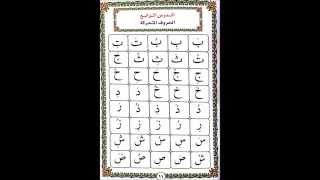 الدرس الرابع
الحروف المتحركة
بَ بِ بُ تَ تِ
تُ ثَ ثِ ثُ جَ
جِ جُ حَ حِ حُ
خَ خِ خُ دَ دِ
دُ ذَ ذِ ذُ رَ
رِ رُ زَ زِ زُ
سَ سِ سُ شَ شِ
شُ صَ صِ صُ ضَ